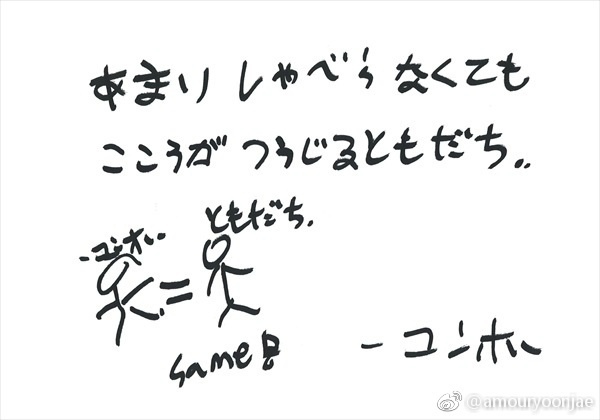 あまり しゃべらなくても
こころが つうじるともだち..
ともだち.
-ユンホ
=
same!!
- ユンホ
@amouryoonjae